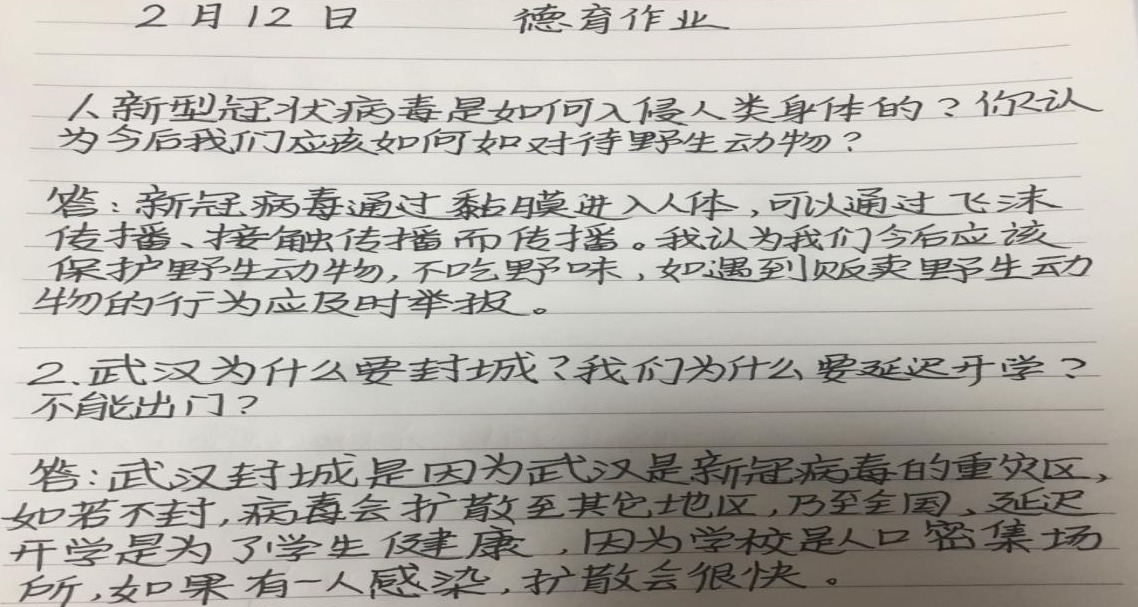 2月12日 德育作业
人新型冠状病毒是如何入侵人类身体的？你认
为今后我们应该如何如对待野生动物？
答：新冠病毒通过黏膜进入人体，可以通过飞沫
传播、接触传播而传播。我认为我们今后应该
保护野生动物，不吃野味，如遇到贩卖野生动
物的行为应及时举报。
2.武汉为什么要封城？我们为什么要延迟开学？
不能出门？
答：武汉封城是因为武汉是新冠病毒的重灾区，
如若不封，病毒会扩散至其它地区，乃至全国、延迟
开学是为了学生健康，因为学校是人口密集场
所，如果有一人感染，扩散会很快。